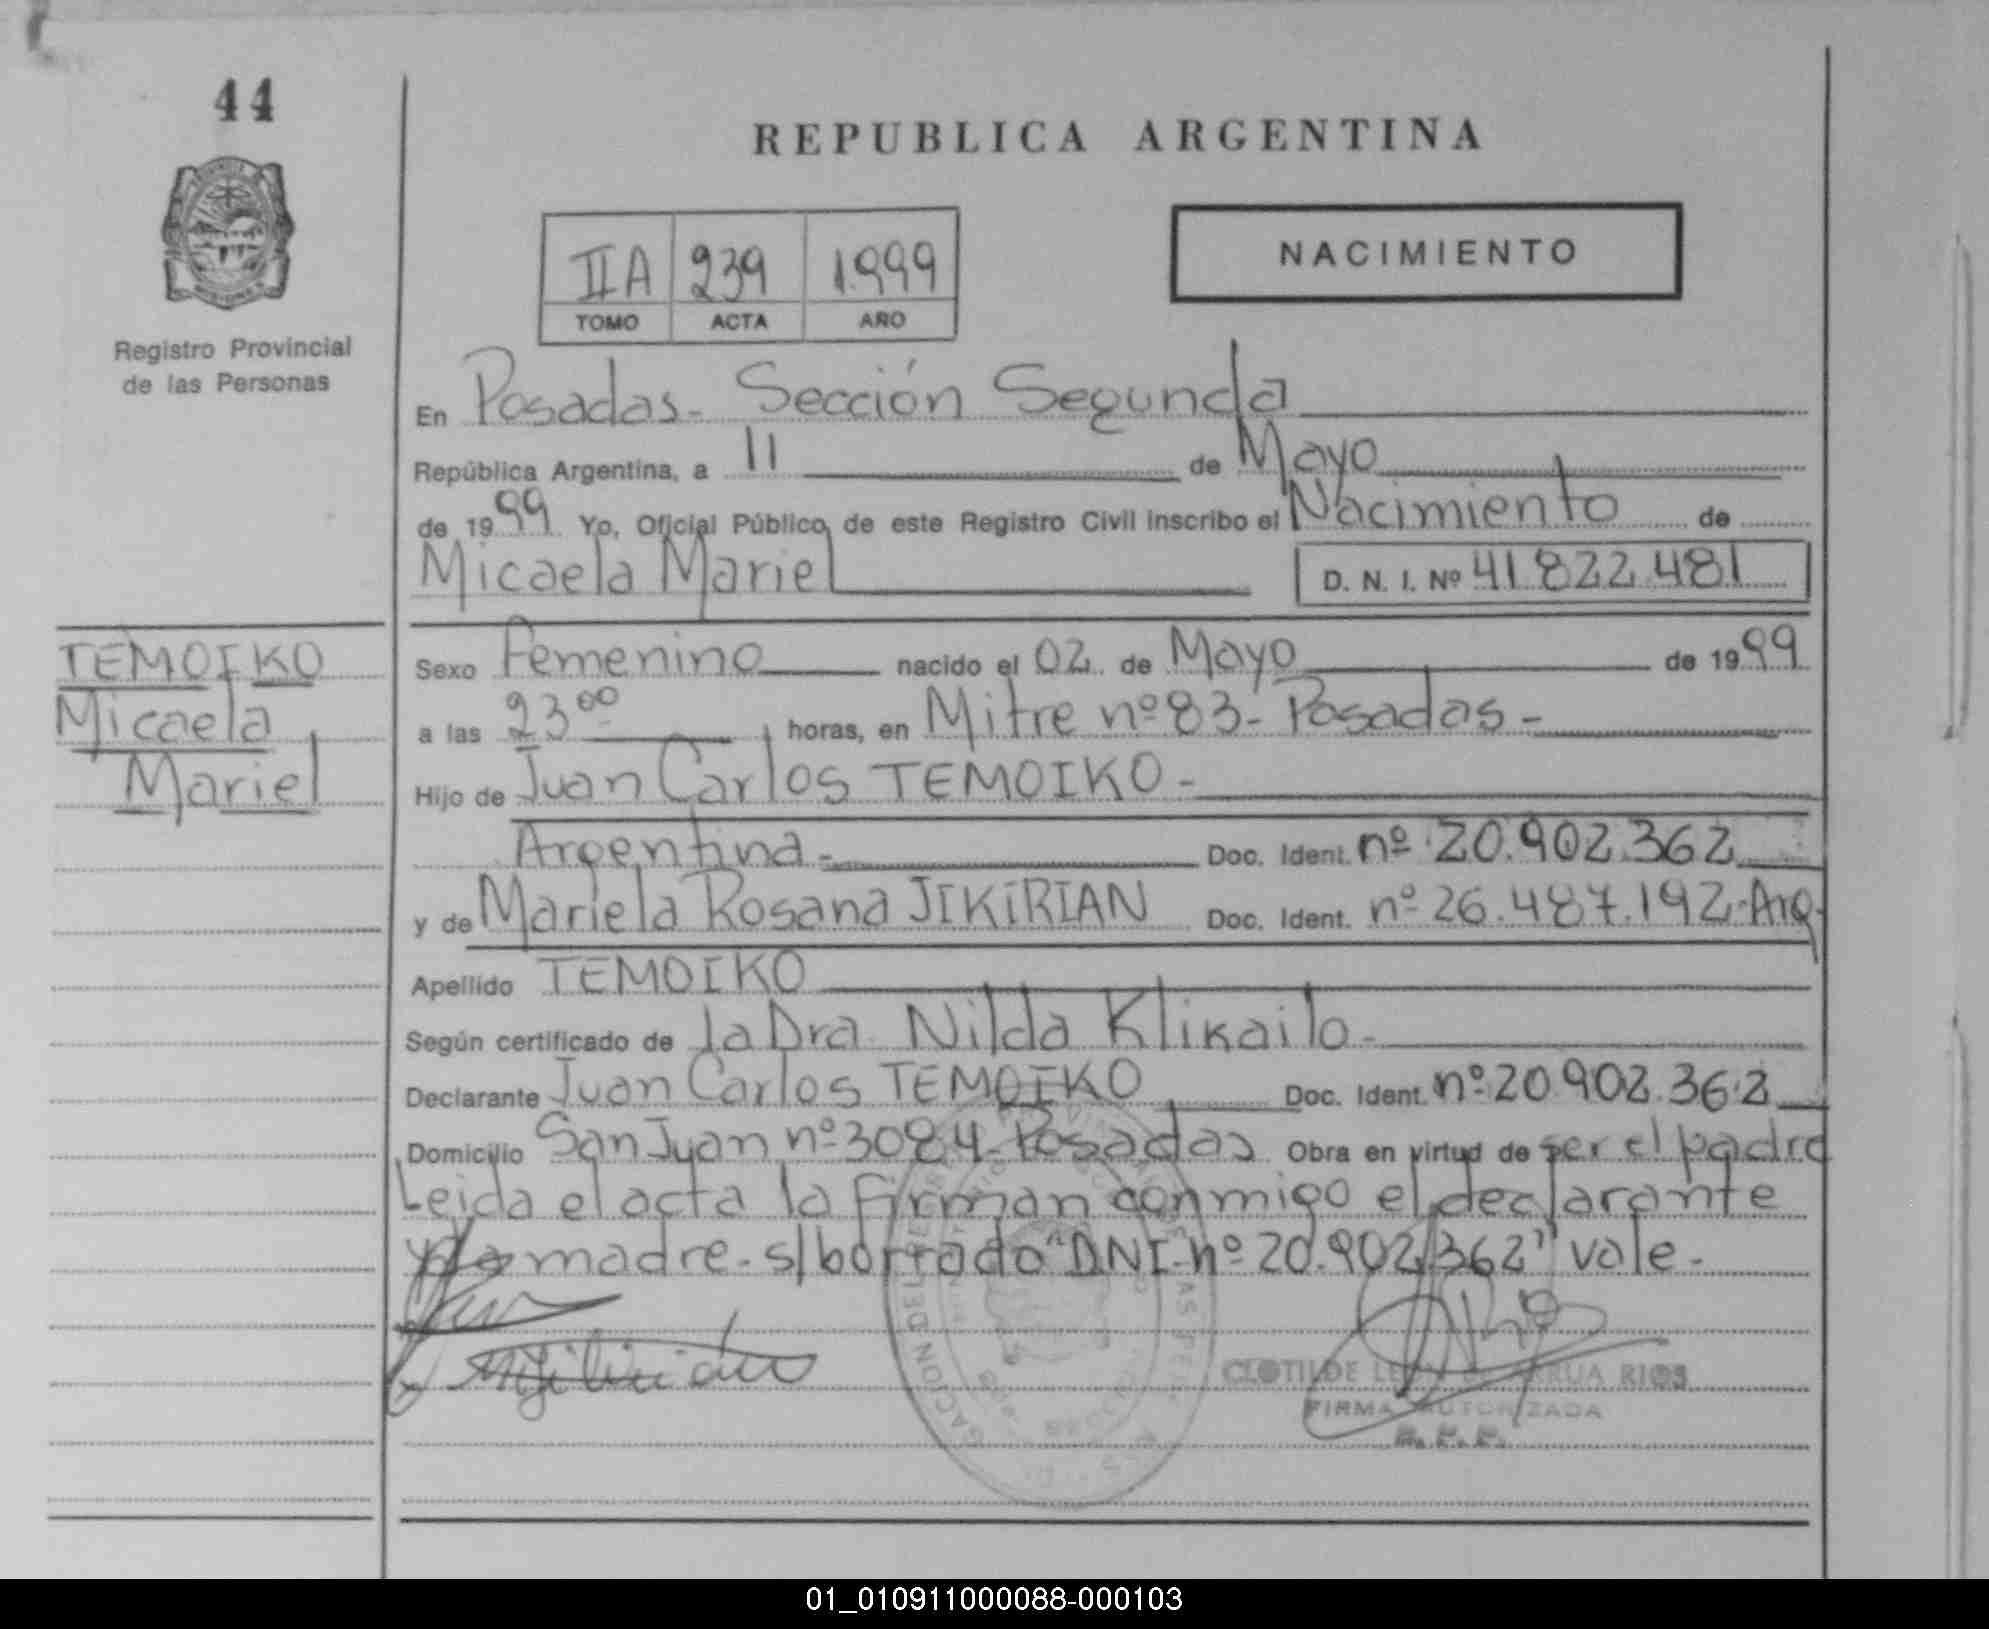 44
REPUBLICA ARGENTINA
IIA 239 1.999
TOMO ACTA AÑO
NACIMIENTO
Registro Provincial
de las Personas
En Posadas - Sección Segunda
República Argentina, a 11 de Mayo
de 1999 Yo, Oficial Público de este Registro Civil inscribo el Nacimiento de
Micaela Mariel D. N. I. Nº 41.822.481
TEMOIKO
Micaela
Mariel
Sexo Femenino nacido el 02 de Mayo de 1999
a las 23⁰⁰ horas, en Mitre nº 83 - Posadas -
Hijo de Juan Carlos TEMOIKO -
Argentina - Doc. Ident. nº 20.902.362
y de Mariela Rosana JIKIRIAN Doc. Ident. nº 26.487.192 - Arg.
Apellido TEMOIKO
Según certificado de la Dra. Nilda Klikailo -
Declarante Juan Carlos TEMOIKO Doc. Ident. nº 20.902.362
Domicilio San Juan nº 3084 - Posadas Obra en virtud de ser el padre
Leida el acta la firman conmigo el declarante
y la madre - s/borrado "DNI - nº 20.902.362" vale -
CLOTILDE RIOS
FIRMA AUTORIZADA
01_010911000088-000103